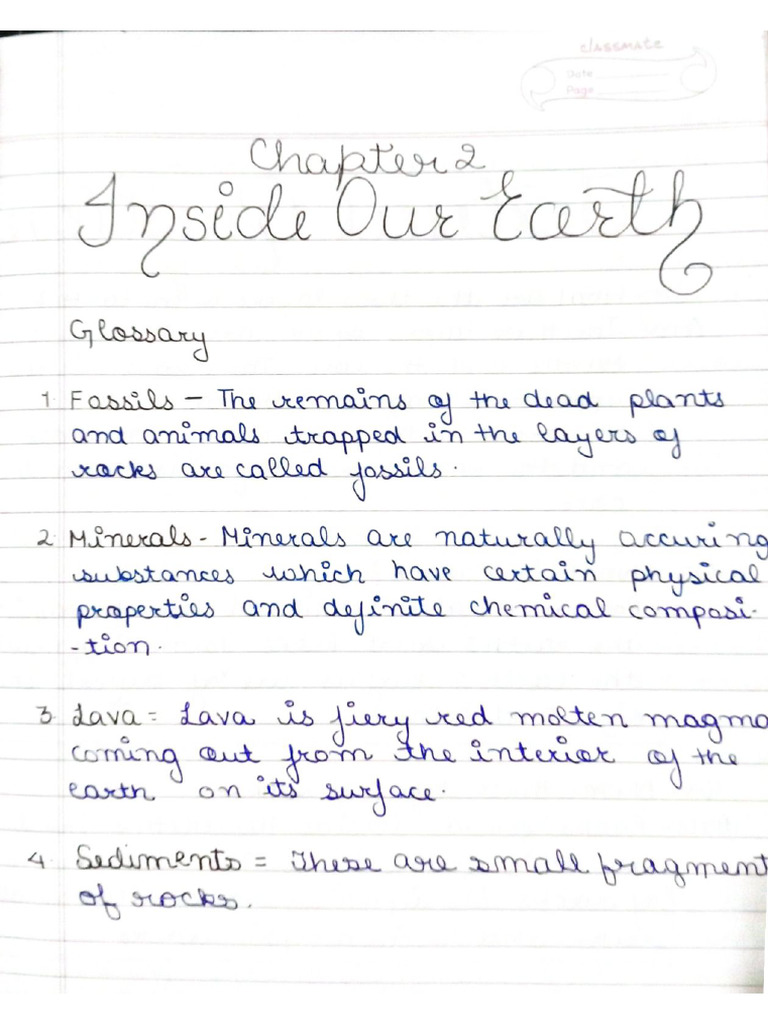 classmate
Date
Page
Chapter 2
Inside Our Earth
Glossary
1. Fossils – The remains of the dead plants
and animals trapped in the layers of
rocks are called fossils.
2. Minerals - Minerals are naturally accuring
substances which have certain physical
properties and definite chemical composi-
-tion.
3. Lava = Lava is fiery red molten magma
coming out from the interior of the
earth on its surface.
4. Sediments = These are small fragment
of rocks.